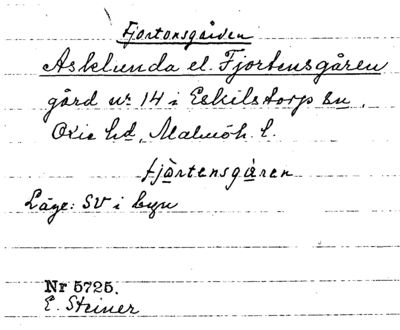 Fjortonsgården
Asklunda el. Fjortensgåren
gård nr 14 i Eskilstorp sn,
Oxie hd, Malmöh. l.
fjortensgåren
Läge: SV i byn
Nr 5725.
E. Steiner